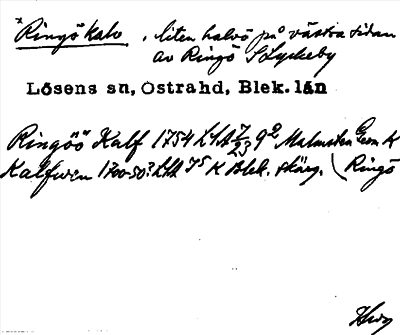 * Ringö kalv, liten halvö på västra sidan
av Ringö S Lyckeby
Lösens sn, Östra hd, Blek. län
Ringöö Kalf 1754 LSA I/23 9² Malmsten Geom. K
Kalfwen 1700-50? LSA I5 K Blek. skärg. (Ringö